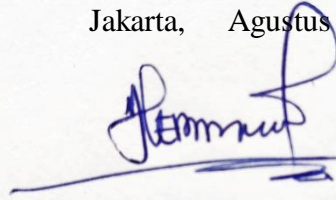 Jakarta, Agustus